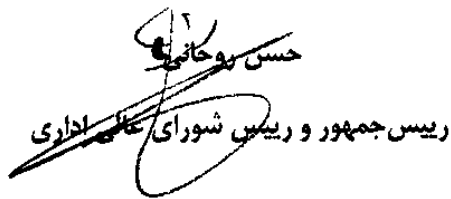 حسن روحانی
رییس جمهور و رییس شورای عالی اداری